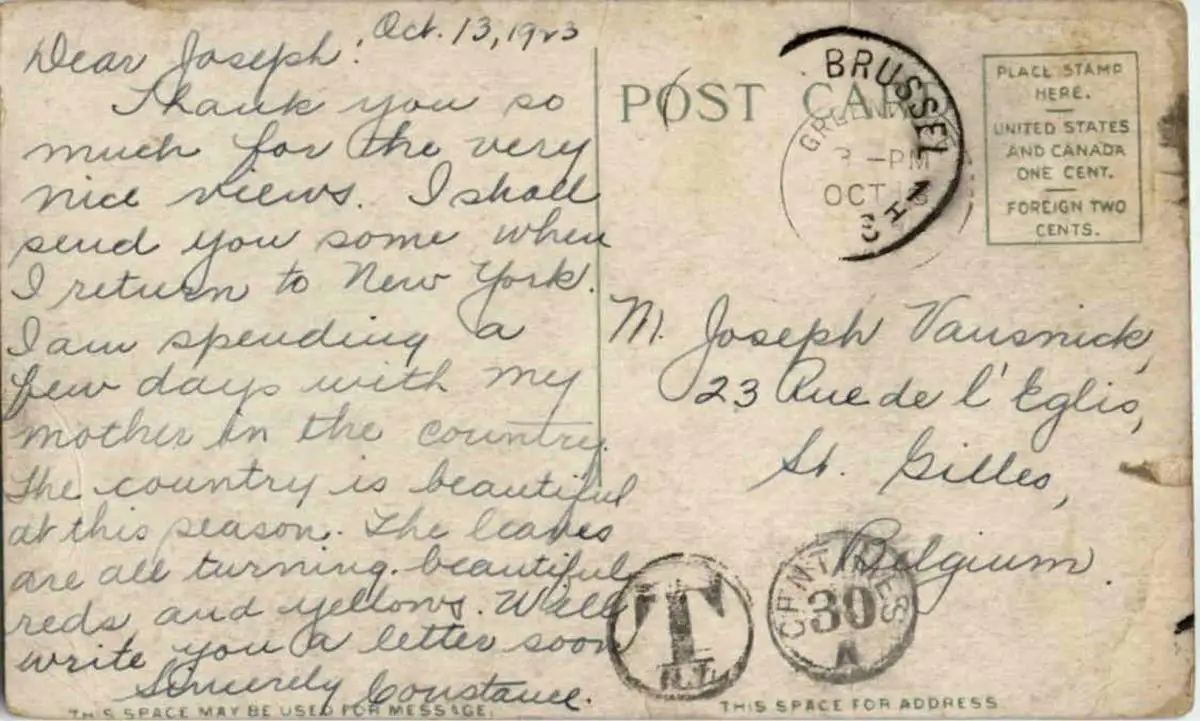 Oct. 13, 1923
Dear Joseph:
Thank you so
much for the very
nice views. I shall
send you some when
I return to New York.
I am spending a
few days with my
mother in the country.
The country is beautiful
at this season. The leaves
are all turning beautiful
reds and yellows. Will
write you a letter soon
Sincerely Constance.
THIS SPACE MAY BE USED FOR MESSAGE.
POST CARD
BRUSSEL
3 -PM
OCT
PLACE STAMP
HERE.
UNITED STATES
AND CANADA
ONE CENT.
FOREIGN TWO
CENTS.
M. Joseph Vansnick,
23 Rue de l'Eglis,
St. Gilles,
Belgium.
T
CENTIMES
30
THIS SPACE FOR ADDRESS